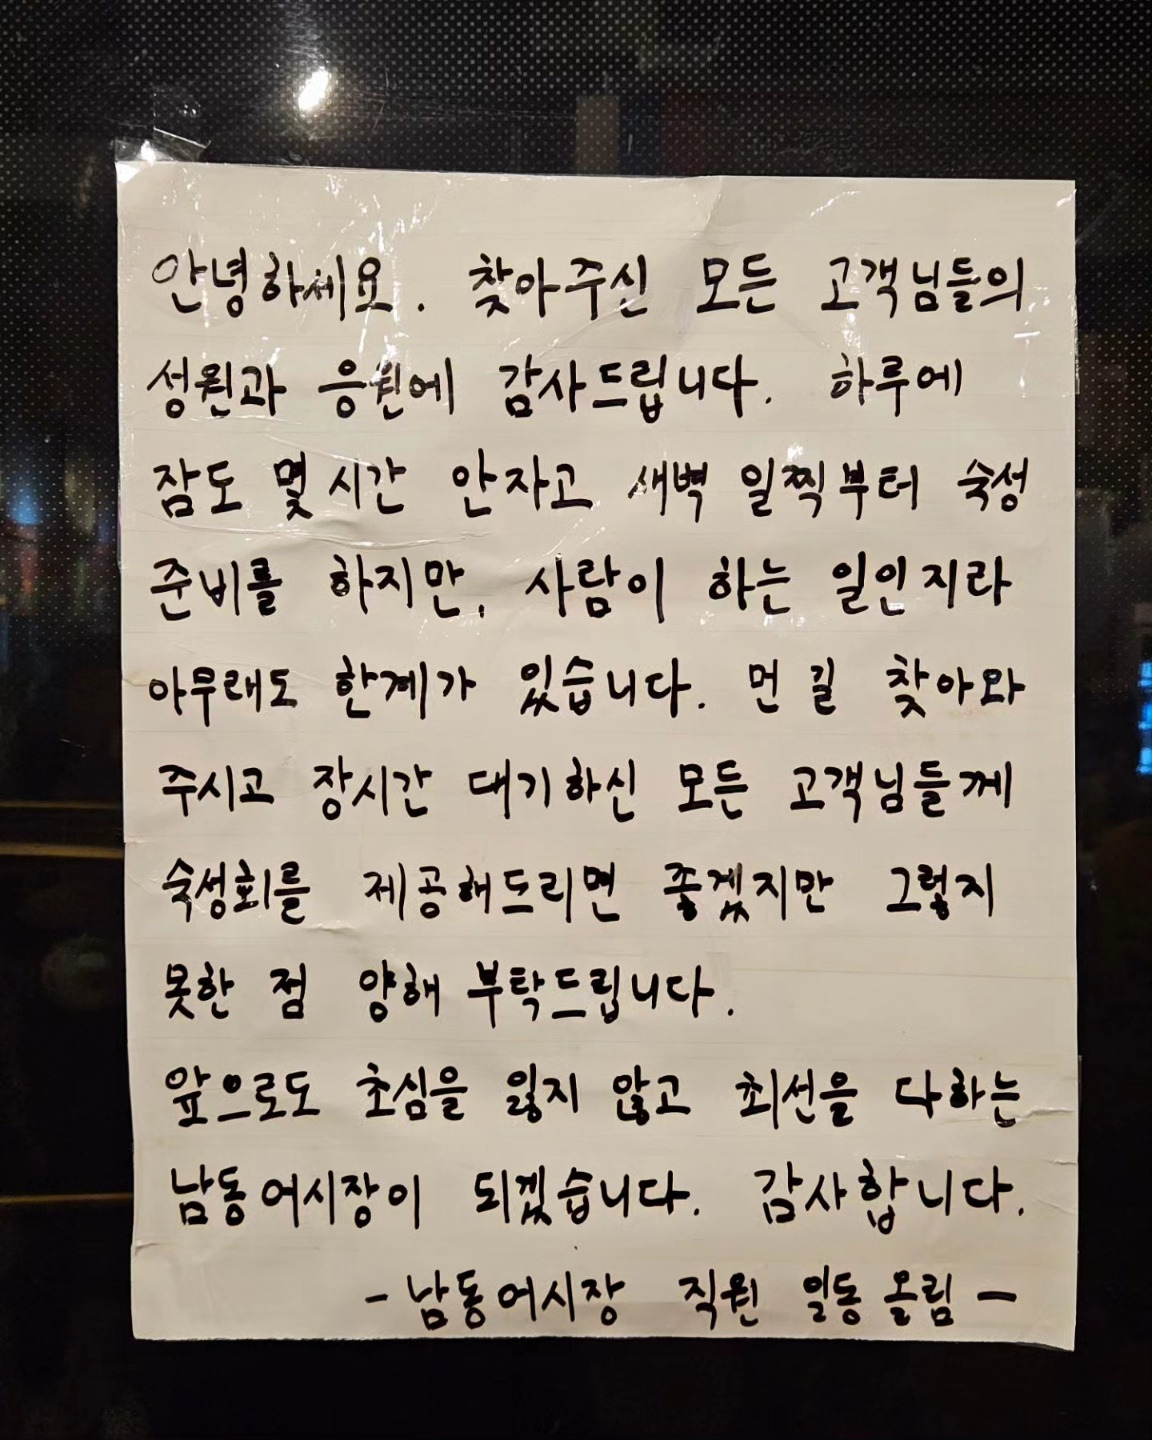 안녕하세요. 찾아주신 모든 고객님들의
성원과 응원에 감사드립니다. 하루에
잠도 몇시간 안자고 새벽 일찍부터 숙성
준비를 하지만, 사람이 하는 일인지라
아무래도 한계가 있습니다. 먼 길 찾아와
주시고 장시간 대기하신 모든 고객님들께
숙성회를 제공해드리면 좋겠지만 그렇지
못한 점 양해 부탁드립니다.
앞으로도 초심을 잃지 않고 최선을 다하는
남동어시장이 되겠습니다. 감사합니다.
- 남동어시장 직원 일동 올림 -